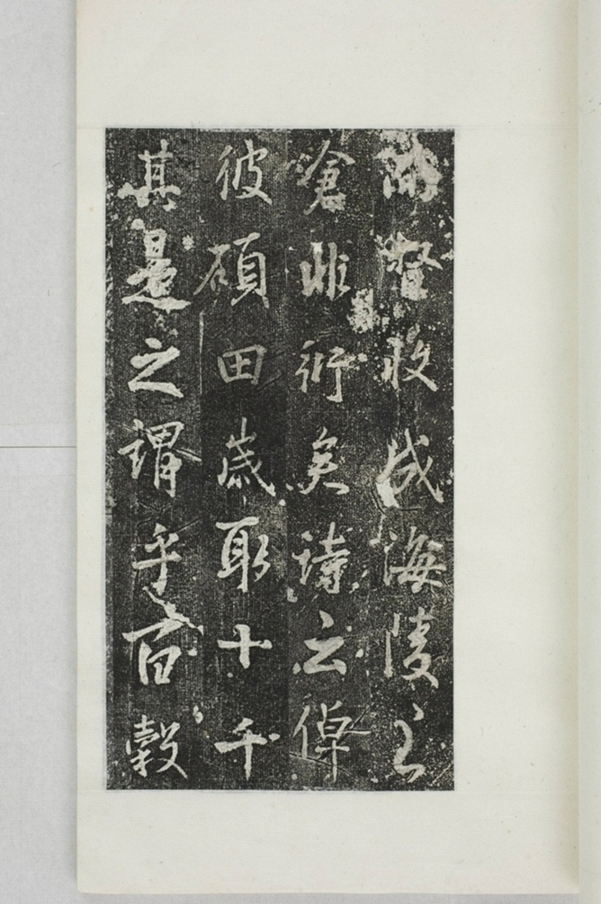 督收成海陵之
滄非衍矣詩云倬
彼碩田歲取十千
其是之謂乎百穀